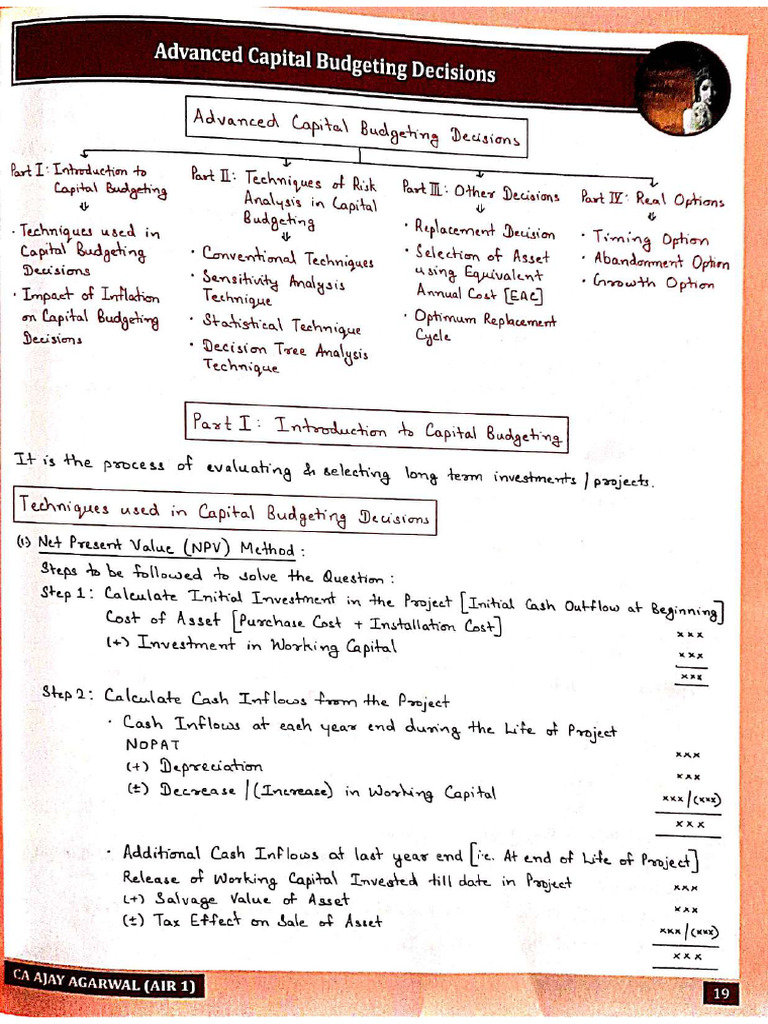 Advanced Capital Budgeting Decisions
Advanced Capital Budgeting Decisions
Part I: Introduction to
Capital Budgeting
⇓
• Techniques used in
Capital Budgeting
Decisions
• Impact of Inflation
on Capital Budgeting
Decisions
Part II: Techniques of Risk
Analysis in Capital
Budgeting
⇓
• Conventional Techniques
• Sensitivity Analysis
Technique
• Statistical Technique
• Decision Tree Analysis
Technique
Part III: Other Decisions
⇓
• Replacement Decision
• Selection of Asset
using Equivalent
Annual Cost [EAC]
• Optimum Replacement
Cycle
Part IV: Real Options
⇓
• Timing Option
• Abandonment Option
• Growth Option
Part I: Introduction to Capital Budgeting
It is the process of evaluating & selecting long term investments / projects.
Techniques used in Capital Budgeting Decisions
(1) Net Present Value (NPV) Method:
Steps to be followed to solve the Question:
Step 1: Calculate Initial Investment in the Project [Initial Cash Outflow at Beginning]
Cost of Asset [Purchase Cost + Installation Cost] xxx
(+) Investment in Working Capital xxx
xxx
Step 2: Calculate Cash Inflows from the Project
• Cash Inflows at each year end during the Life of Project
NOPAT xxx
(+) Depreciation xxx
(±) Decrease / (Increase) in Working Capital xxx/(xxx)
xxx
• Additional Cash Inflows at last year end [i.e. At end of Life of Project]
Release of Working Capital Invested till date in Project xxx
(+) Salvage Value of Asset xxx
(±) Tax Effect on Sale of Asset xxx/(xxx)
xxx
CA AJAY AGARWAL (AIR 1)
19